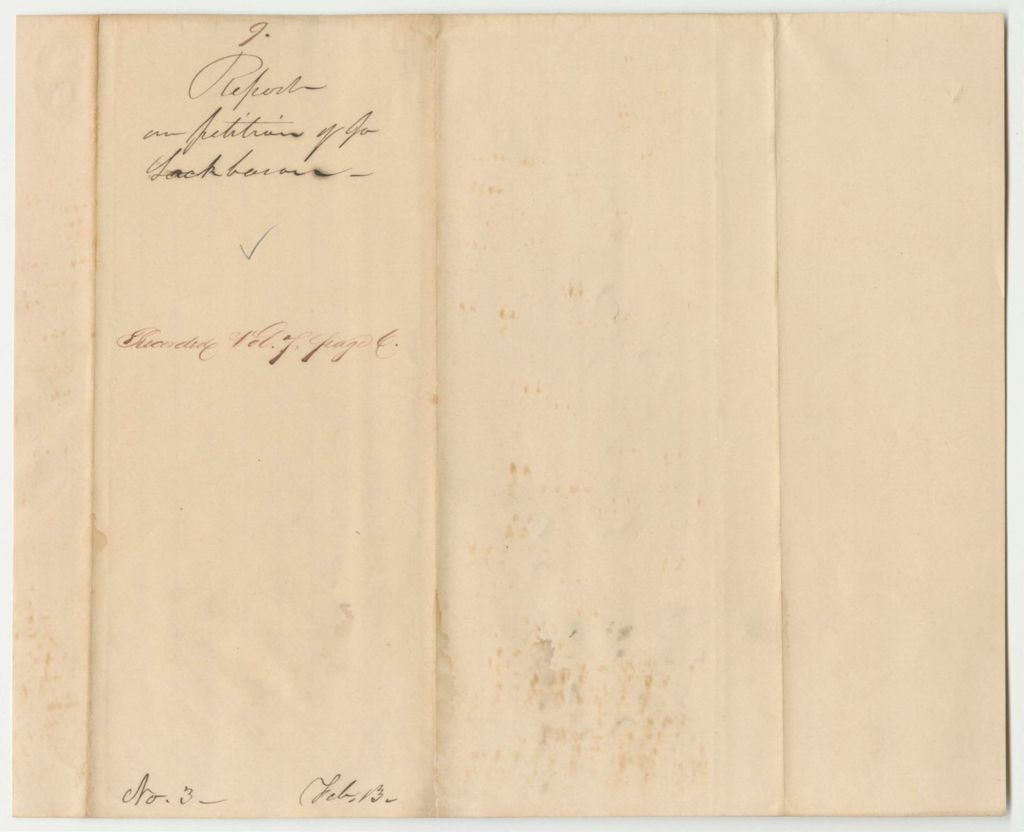 9.
Report
on petition of Jo
Lackbaron -
Recorded Vol. 7. page 6.
No. 3 - Feb. 13.